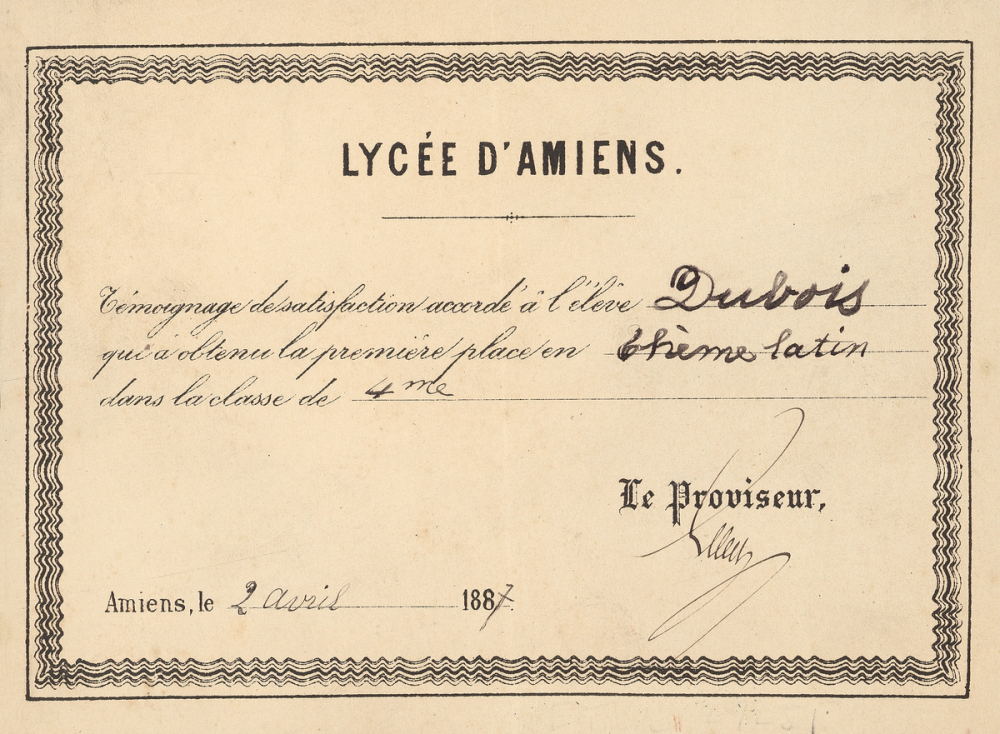 LYCÉE D'AMIENS.
Témoignage de satisfaction accordé à l'élève Dubois
qui a obtenu la première place en thème latin
dans la classe de 4me
Le Proviseur,
Amiens, le 2 avril 1887